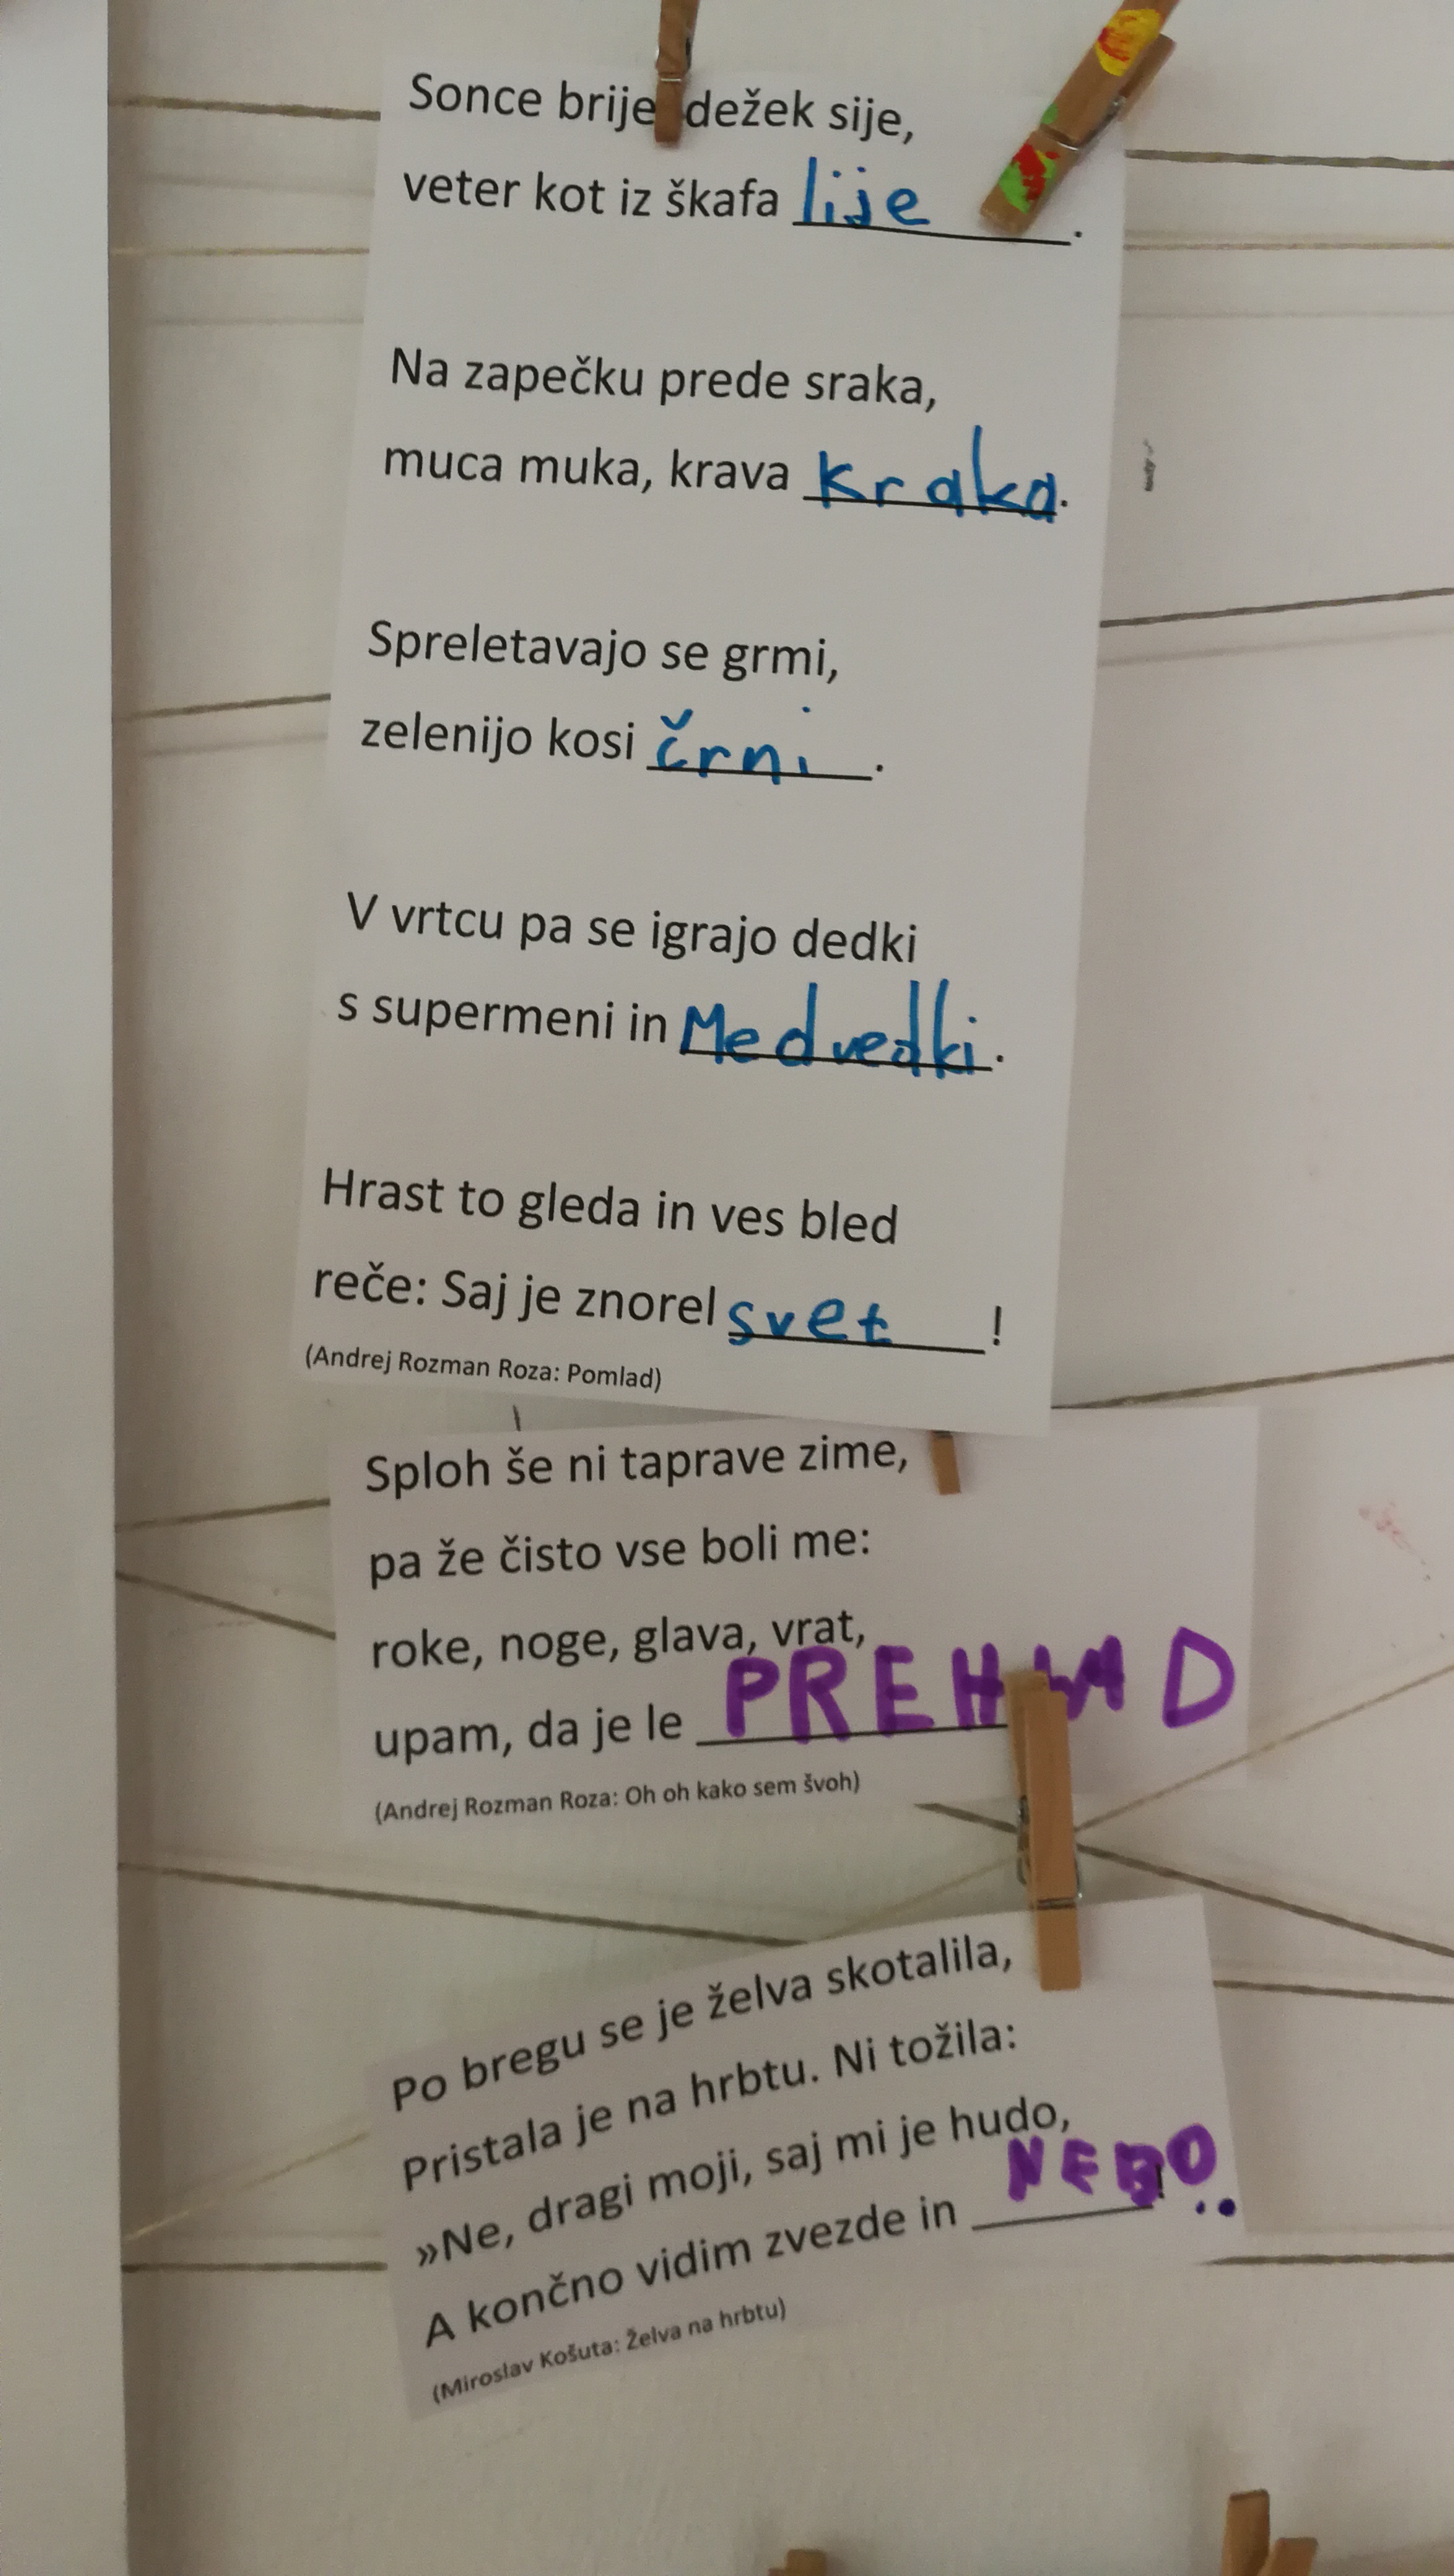 Sonce brije dežek sije,
veter kot iz škafa lije.
Na zapečku prede sraka,
muca muka, krava kraka.
Spreletavajo se grmi,
zelenijo kosi črni.
V vrtcu pa se igrajo dedki
s supermeni in Medvedki.
Hrast to gleda in ves bled
reče: Saj je znorel svet!
(Andrej Rozman Roza: Pomlad)
Sploh še ni taprave zime,
pa že čisto vse boli me:
roke, noge, glava, vrat,
upam, da je le
(Andrej Rozman Roza: Oh oh kako sem švoh)
Po bregu se je želva skotalila,
Pristala je na hrbtu. Ni tožila:
»Ne, dragi moji, saj mi je hudo,
A končno vidim zvezde in NEBO!
(Miroslav Košuta: Želva na hrbtu)